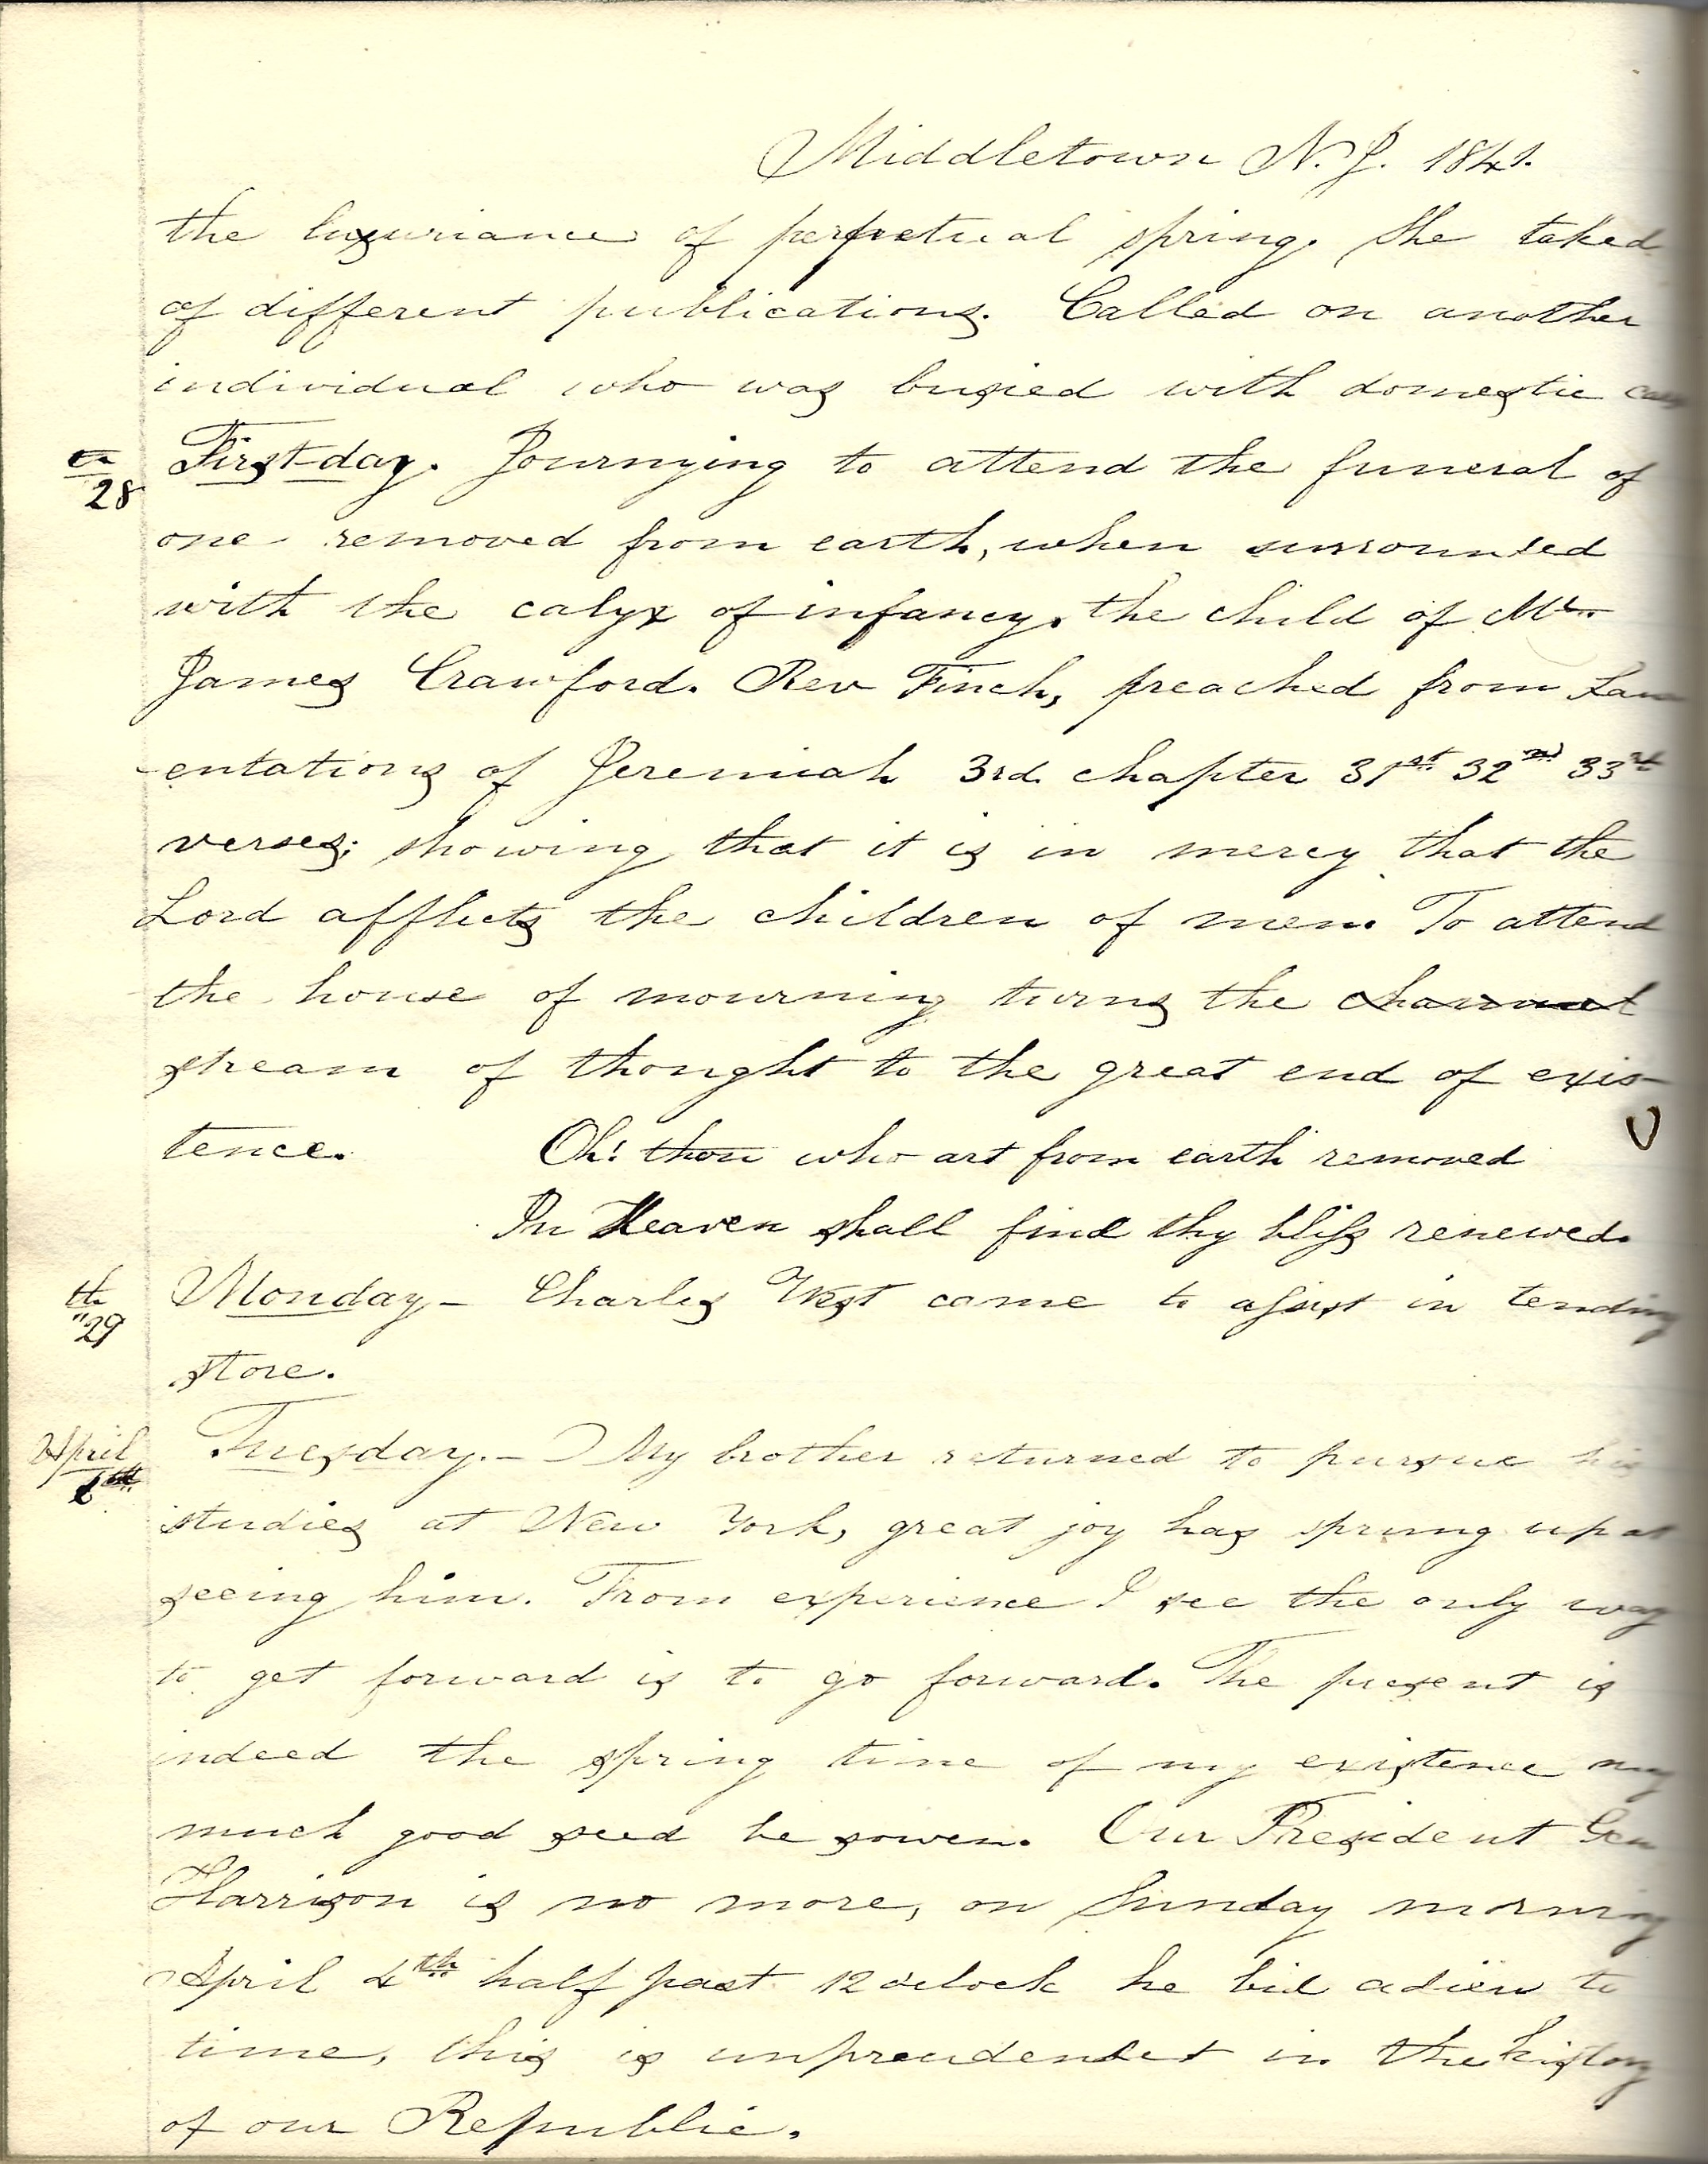 Middletown N.J. 1841.
the luxuriance of perpetual spring. She taked
of different publications. Called on another
individual who was busied with domestic
th 28 First-day. Journying to attend the funeral of
one removed from earth, when surrounded
with the calyx of infancy. the child of Mr.
James Crawford. Rev Finch, preached from Lam
-entations of Jeremiah 3rd chapter 31st 32nd 33rd
verses; showing that it is in mercy that the
Lord afflicts the children of men. To attend
the house of mourning turns the channel
stream of thought to the great end of exis-
tence. Oh! thou who art from earth removed
In Heaven shall find thy bliss renewed.
th 29 Monday - Charles West came to assist in tending
store.
April Tuesday. - My brother returned to pursue his
studies at New York, great joy has sprung up at
seeing him. From experience I see the only way
to get forward is to go forward. The present is
indeed the spring time of my existence may
much good seed be sowen. Our President Gen
Harrison is no more, on Sunday morning
April 4th half past 12 oclock he bid adieu to
time, this is unpreudendet in the history
of our Republic.